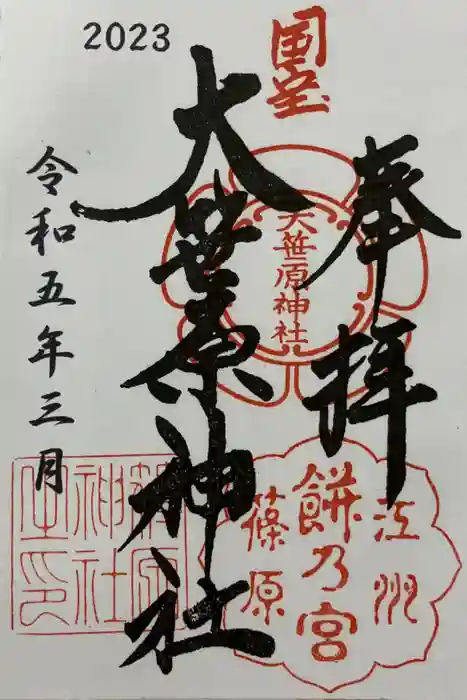 2023
国宝
奉拝
大笹原神社
大笹原神社
江州
餅乃宮
篠原
令和五年三月